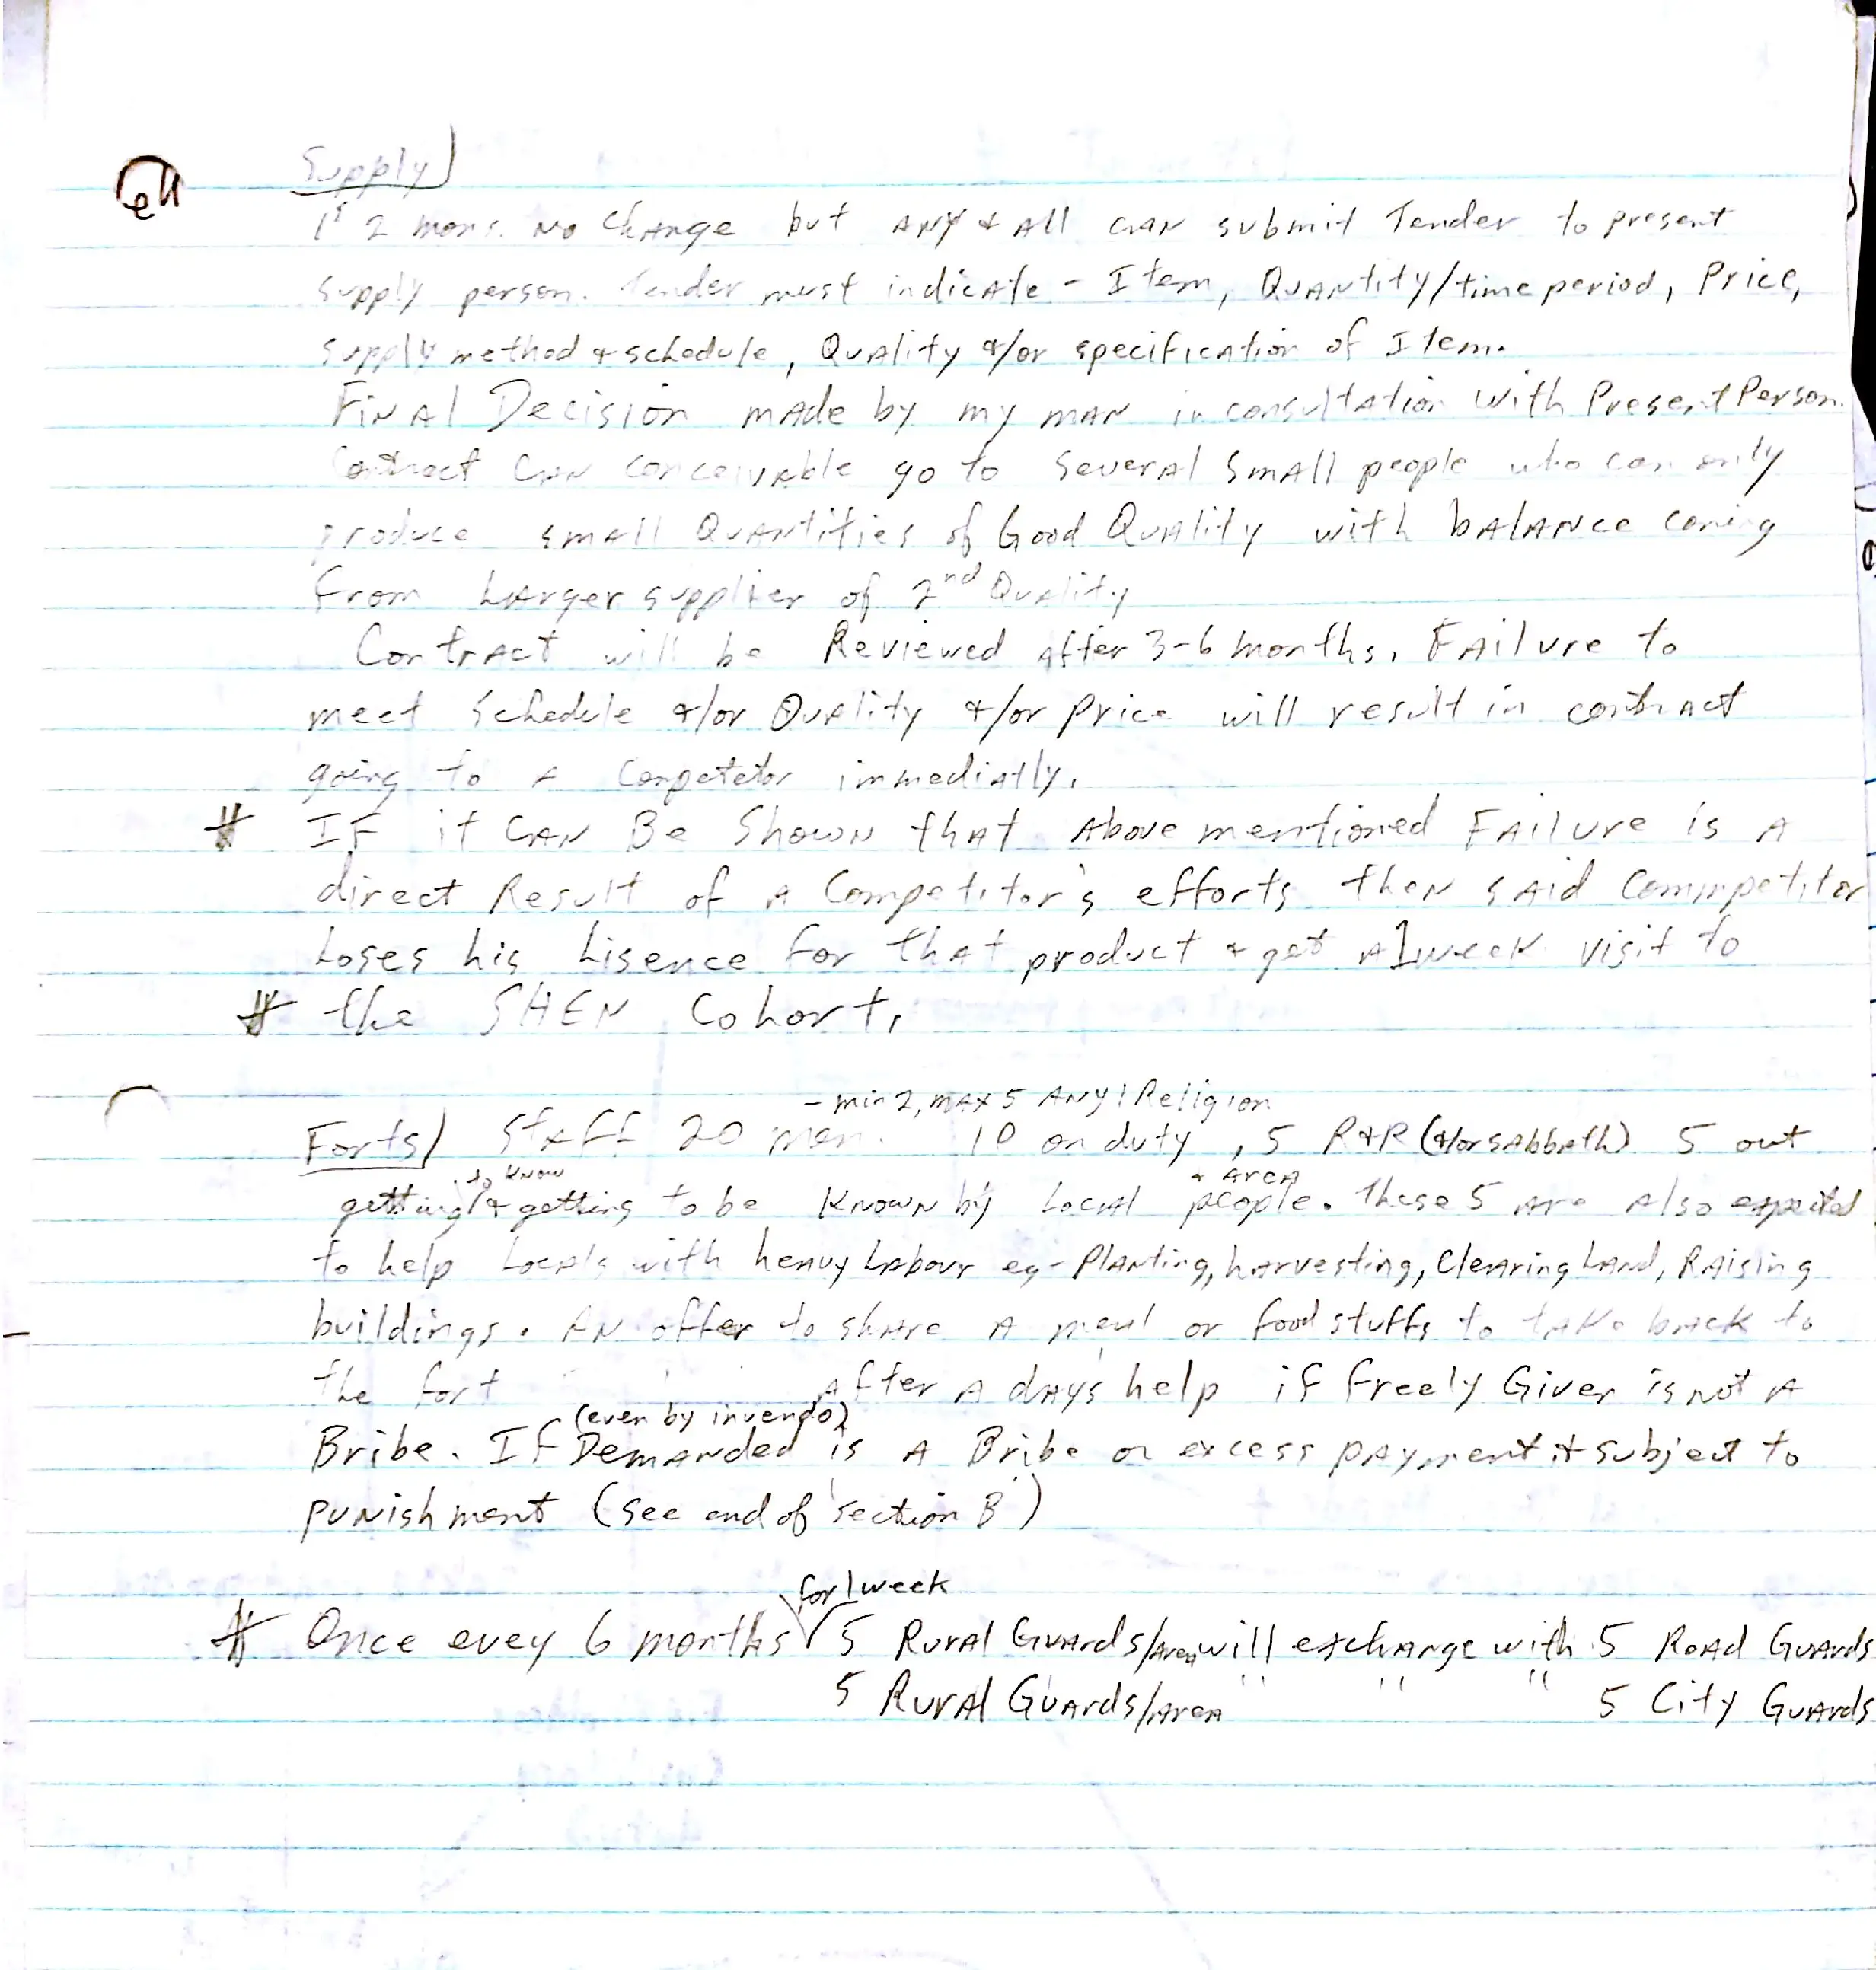 Supply)
1st 2 mons. No Change but ANY & All CAN submit Tender to present
supply person. Tender must indicate - Item, Quantity/time period, Price,
supply method & schedule, Quality &/or specification of Item.
Final Decision made by my man in consultation with Present Person.
Contract can conceivable go to Several Small people who can only
produce small Quantities of Good Quality with balance coming
from Larger supplier of 2nd Quality
Contract will be Reviewed after 3-6 months. Failure to
meet Schedule &/or Quality &/or price will result in contract
going to a Competetor immediatly.
# IF it CAN Be Shown that Above mentioned Failure is A
direct Result of a Competitor's efforts then said Commpetitor
Loses his Lisence for that product & get a 1 week visit to
# the SHEN Cohort.
- min 2, max 5 Any 1 Religion
Forts) Staff 20 men. 10 on duty, 5 R&R (&/or sabbath) 5 out
to know & area
getting & getting to be Known by Local people. These 5 are also expected
to help Locals with heavy Labour eg- Planting, harvesting, Clearing Land, Raising
buildings. An offer to share a meal or food stuffs to take back to
the fort after a days help if freely Given is not a
(even by invendo)
Bribe. If Demanded is a Bribe or excess payment & subject to
punishment (see end of section B)
for 1 week
# Once evey 6 months 5 Rural Guards/Area will exchange with 5 Road Guards
5 Rural Guards/Area " " " 5 City Guards